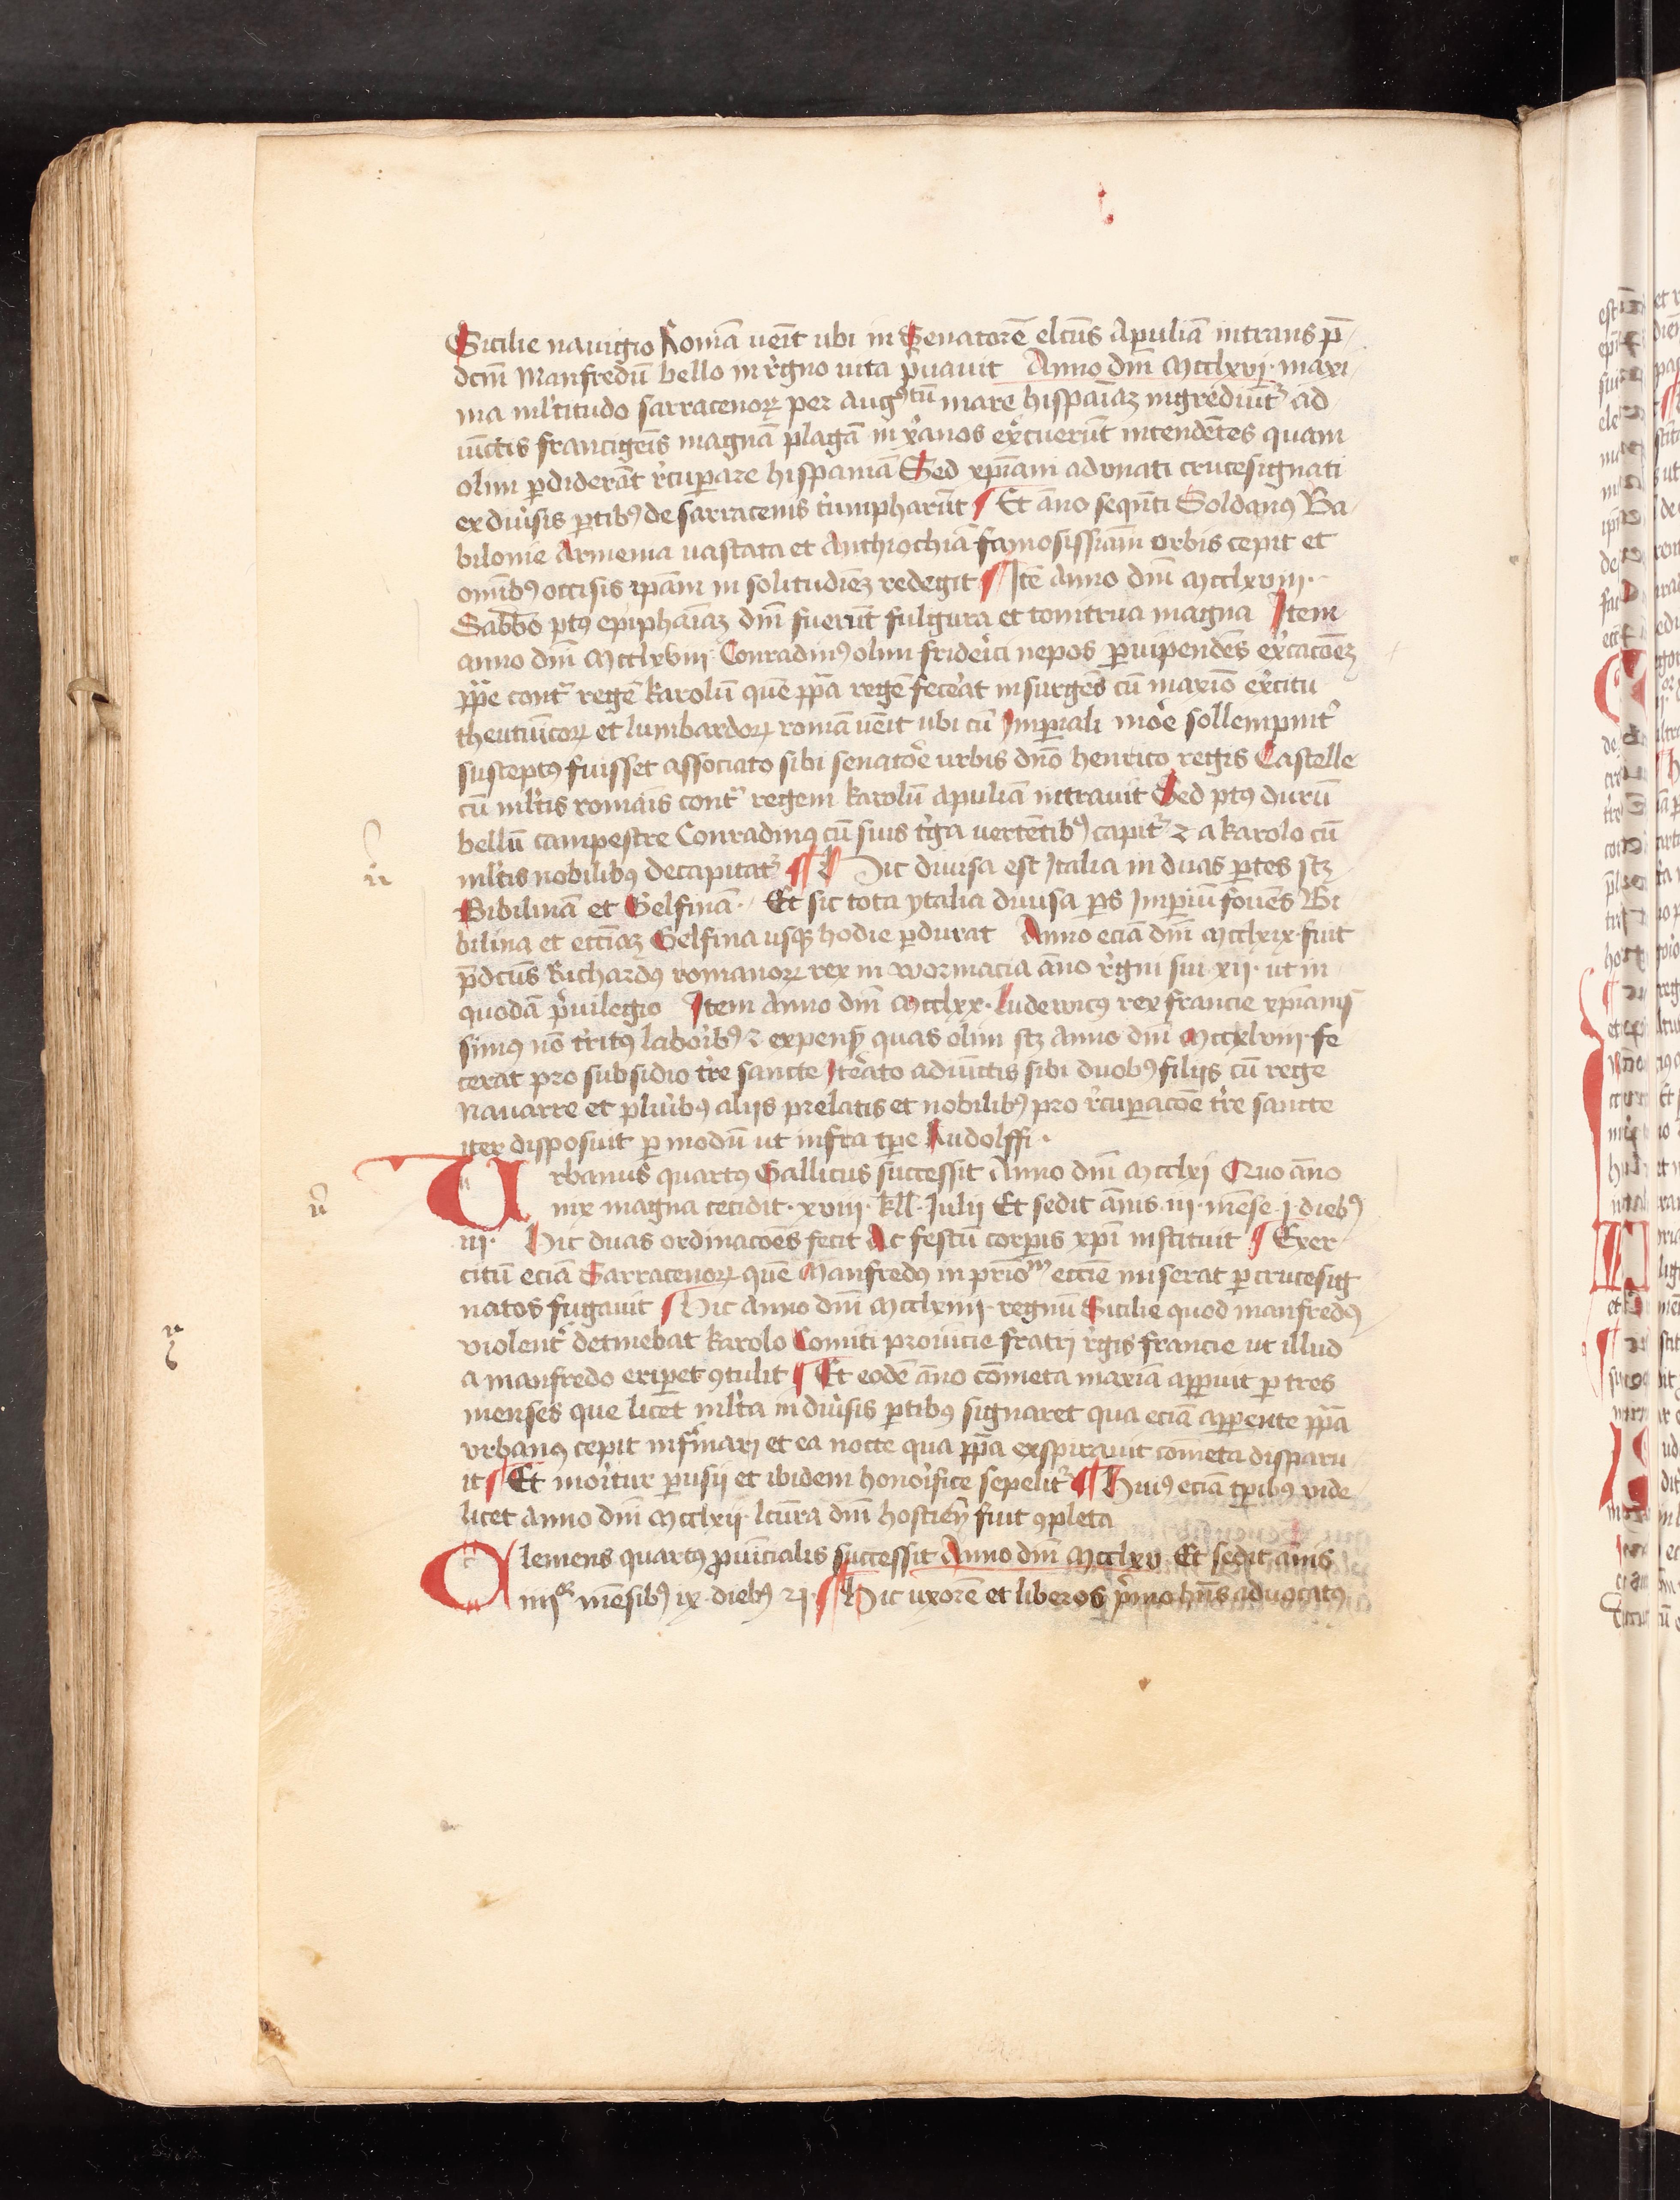 Sicilie nauigio Romā uēit ubi in Senatorē elcūs Apuliā intrans p̄
dcm̄ Manfredū bello in rͥgno uita p̱uauit Anno dm̄ Mcclxvj· maxi
ma ml̓titudo sarracenoꝝ per augꝰtū mare hispaīaꝫ ingrediūt᷑ ad
iūctis francigeīs magnā plagā in xp̄anos ex̓cuerūt intendētes quam
olim ꝑdiderāt r̓cuꝑare hispaniā Sed xp̄iani adunati crucesignati
ex diu̓sis ꝑtibꝰ de sarracenis t̓umpharūt ¶ Et āno seqn̄ti Soldanꝰ Ba
bilonie Armenia uastata et Anthiochiā famosissiam̄ orbis cepit et
om̄ibꝰ occisis ip̄am in solitudīeꝫ redegit ¶ Itē Anno dm̄ Mcclxviii·
Sabb̄o ptꝰ epiphaīaꝫ dm̄ fuerūt fulgura et tonitrua magna Item
anno dm̄ Mcclxviii· Conradinꝰ olim frideri̓ci nepos ꝑuipendēs ex̓cacōeꝫ
pp̄e cont᷑ regē karolū quē pp̄a regē fece̓at insurgēs cū maxīo ex̓citu
theutuīcoꝝ et lumbardoꝝ romā uēit ubi cū Imꝑiali mo̓e sollempnit᷑
susceptꝰ fuisset associato sibi senato̓e urbis dn̄o henrico regis Castelle
cū ml̓tis romāis cont᷑ regem karolū Apuliā intrauit Sed ptꝰ durū
bellū campestre Conradinꝰ cū suis t̓ga uertētibꝰ capit᷑ ⁊ a karolo cū
ml̓tis nobilibꝰ decapitat᷑ ¶ Hic diuisa est Italia in duas ꝑtes scꝫ
Bibilinā et Gelfinā· Et sic tota ytalia diuisa ꝑs Imꝑiū fouēs Bi
bilina et eccīaꝫ Gelfina usqꝫ hodie ꝑdurat Anno eciā dm̄ Mcclxix· fuit
p̄dcūs Richardꝰ romanoꝝ rex in wormacia āno r̓gni sui xii· ut in
quodā p̓uilegio Item Anno dm̄ Mcclxx· Ludewicꝰ rex francie xp̄ianis
simꝰ nō t̓ritꝰ labo̓ibꝰ ⁊ expens̓ quas olim scꝫ Anno dm̄ Mccxlviii· fe
cerat pro subsidio t̓re sancte Ite̓ato adiūctis sibi duobꝰ filijs cū rege
Nauarre et plu̓ibꝰ alijs prelatis et nobilibꝰ pro r̓cuꝑacōe t̓re sancte
iter disposuit ꝑ modū ut infra tꝑe Rudolffi·
Urbanus quartꝰ Gallicus successit Anno dm̄ Mcclxj Quo āno
nix magna cecidit· xviii· kll· Julii Et sedit ānis iij· mēse j· diebꝰ
iij· Hic duas ordinacōes fecit Ac festū corꝑis xp̄i instituit ¶ Exer
citū eciā Sarracenoꝝ quē Manfredꝰ in pri̓oᵐ eccīe miserat ꝑ crucesig
natos fugauit ¶ Hic Anno dm̄ Mcclxiiii· regnū Sicilie quod manfredꝰ
violent᷑ detinebat karolo Comiti prouīcie fratri r̓gis francie ut illud
a manfredo eriꝑet ꝯtulit ¶ Et eodē āno cōmeta maxīa apꝑuit ꝑ tres
menses que licet ml̓ta in diu̓sis ꝑtibꝰ signaret qua eciā apꝑente pp̄a
vrbanꝰ cepit infi̓mari et ea nocte qua pp̄a exspirauit cōmeta disparu
it ¶ Et mori̓tur ꝑusii et ibidem honori̓fice sepelit᷑ ¶ Huiꝰ eciā tꝑibꝰ vide
licet Anno dm̄ Mcclxii· lcūra dm̄ hostien̄ fuit ꝯpleta
Clemens quartꝰ ꝓuīcialis successit Anno dm̄ Mcclxv Et sedit ānis
iiijᵒʳ mēsibꝰ ix diebꝰ 21 ¶ Hic uxorē et liberos p̓mo hn̄s aduocatꝰ